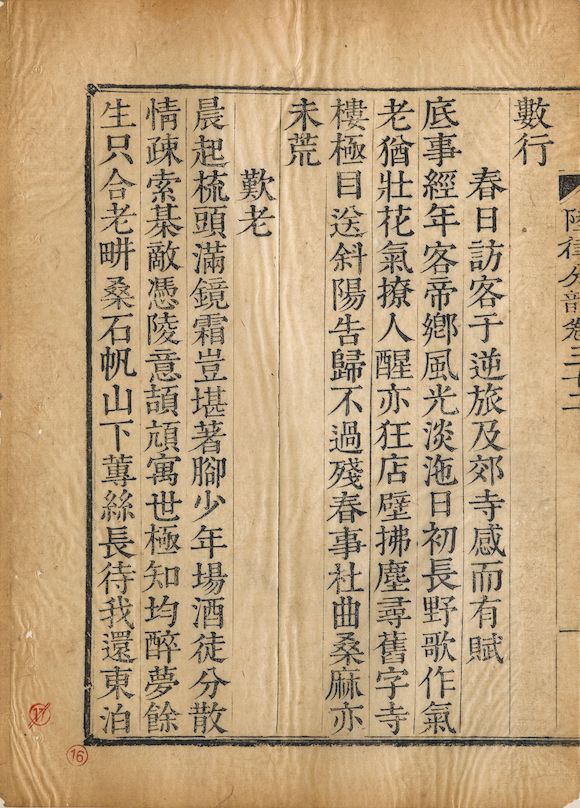 陸律分韻卷三十二
一
數行
春日訪客于逆旅及郊寺感而有賦
底事經年客帝鄉風光淡沲日初長野歌作氣
老猶壯花氣撩人醒亦狂店壁拂塵尋舊字寺
樓極目送斜陽告歸不過殘春事杜曲桑麻亦
未荒
歎老
晨起梳頭滿鏡霜豈堪著腳少年場酒徒分散
情疎索棊敵憑陵意頡頏寓世極知均醉夢餘
生只合老畊桑石帆山下蓴絲長待我還東泊
17
16